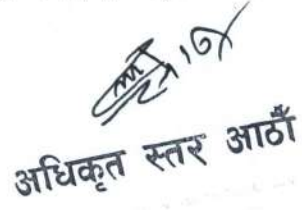 अधिकृत स्तर आठौँ